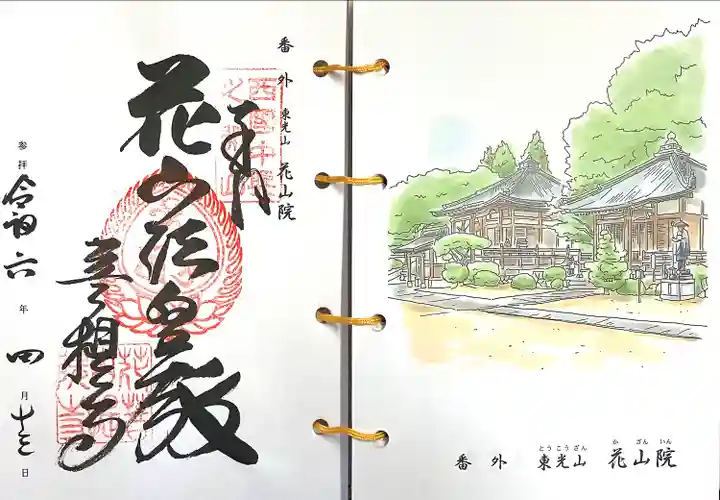 番外 東光山 花山院
奉拝
花山法皇殿
菩提寺
参拝 令和六年四月 日
とうこうざん か ざん いん
番外 東光山 花山院